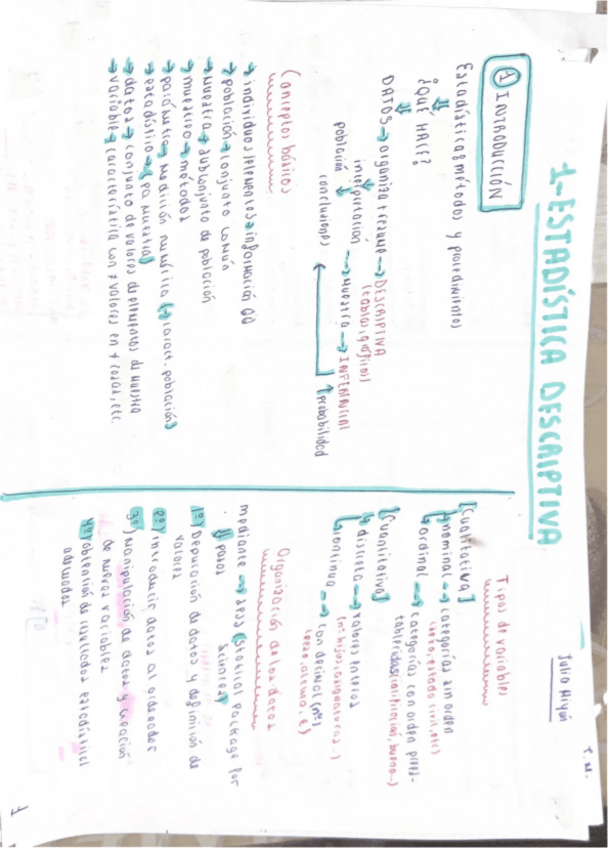 1-ESTADÍSTICA DESCRIPTIVA
Julia
T.M.
① INTRODUCCIÓN
Estadística métodos y procedimientos
¿QUÉ HACE?
DATOS → organiza + resume → DESCRIPTIVA
(tablas, gráficos)
interpretación → muestra → INFERENCIAL
población conclusiones
↑ probabilidad
Conceptos básicos
→ individuos/elementos → información
→ población → conjunto común
→ muestra → subconjunto de población
→ muestreo → métodos
→ parámetro → medición numérica (→ caract. población)
→ estadístico → (pa muestra)
→ datos → conjunto de valores de elementos de muestra
→ variable → característica con ≠ valores en ≠ cosas, etc.
Tipos de variables
[Cualitativa]
↳ nominal → categorías sin orden
(sexo, estado civil, etc)
↳ ordinal → categorías con orden prees-
tablecidas (calificación, bueno...)
[Cuantitativa]
↳ discreta → valores enteros
(nº hijos, asignaturas..)
↳ continua → con decimal (nº)
(peso, altura, €)
Organización de los datos
mediante → SPSS (Statical Package for
Science)
↓ pasos
1º) Depuración de datos y definición de
valores
2º) introducir datos al ordenador
3º) Manipulación de datos y creación
de nuevas variables
4º) obtención de resultados estadísticos
adecuados
1